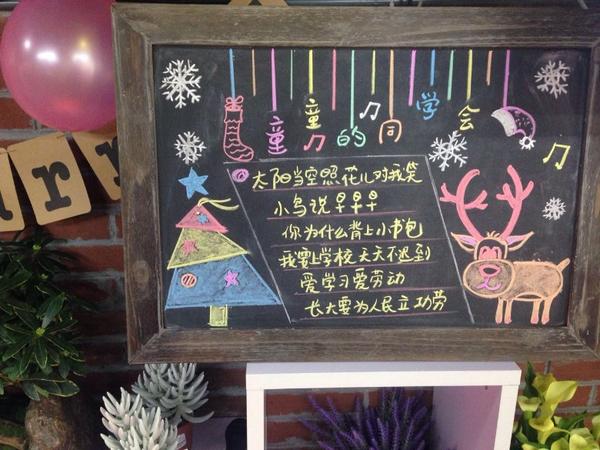 童童的同学会
太阳当空照花儿对我笑
小鸟说早早早
你为什么背上小书包
我要上学校 天天不迟到
爱学习爱劳动
长大要为人民立功劳
rr